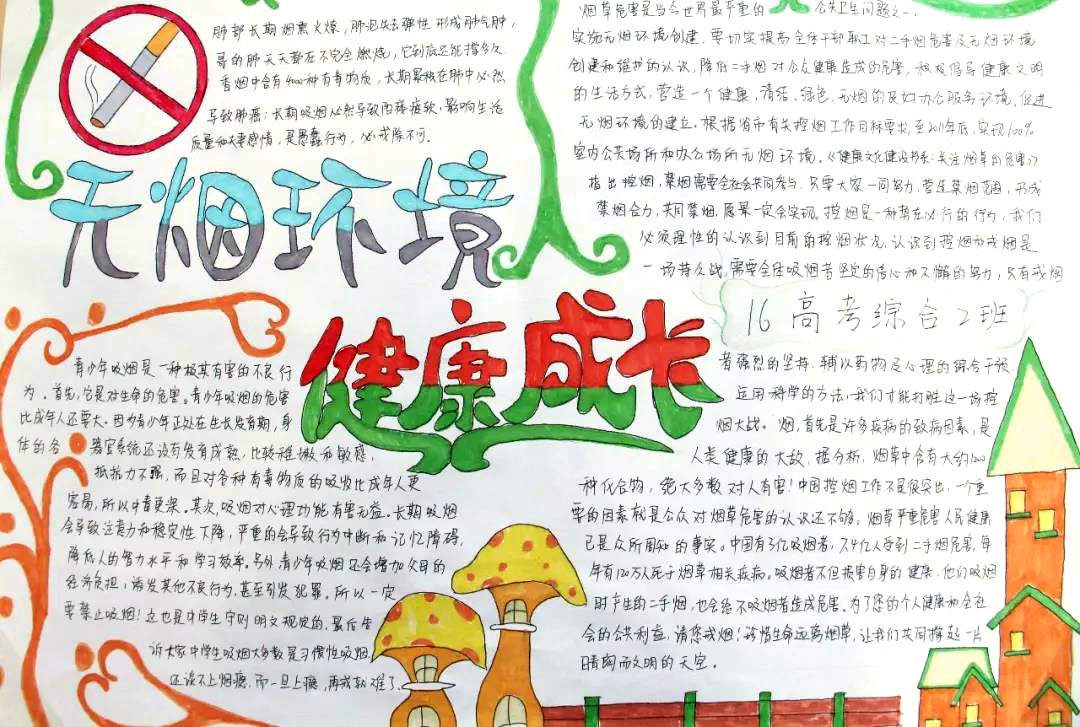 肺部长期烟熏火燎，肺泡失去弹性形成肺气肿，
哥的肺天天都在不完全燃烧，它到底还能撑多久.
香烟中含有4000种有毒物质，长期累积在肺中必然
导致肺癌；长期吸烟必然导致阳痿疲软.影响生活
质量和夫妻感情，是愚蠢行为，必戒除不可.
无烟环境
健康成长
青少年吸烟是一种极其有害的不良行
为.首先，它是对生命的危害.青少年吸烟的危害
比成年人还要大.因为青少年正处在生长发育期，身
体的各器官系统还没有发育成熟，比较稚嫩和敏感，
抵抗力不强，而且对各种有毒物质的吸收比成年人更
容易，所以中毒更深.其次，吸烟对心理功能有害无益.长期吸烟
会导致注意力和稳定性下降，严重的会导致行为中断和记忆障碍，
降低人的智力水平和学习效率.另外青少年吸烟还会增加父母的
经济负担，诱发其他不良行为，甚至引发犯罪.所以一定
要禁止吸烟！这也是中学生守则明文规定的.最后告
诉大家中学生吸烟大多数是习惯性吸烟，
还谈不上烟瘾，而一旦上瘾，再戒就难了.
烟草危害是当今世界最严重的公共卫生问题之一.
实施无烟环境创建，要切实提高全体干部职工对二手烟危害及无烟环境
创建和维护的认识，降低二手烟对公众健康造成的危害，积极倡导健康文明
的生活方式，营造一个健康，清洁，绿色，无烟的良好办公服务环境，促进
无烟环境的建立.根据省市有关控烟工作目标要求，至2011年底，实现100%
室内公共场所和办公场所无烟环境.《健康文化建设书系：关注烟草的危害》
指出控烟，禁烟需要全社会共同参与，只要大家一同努力，营造禁烟范围，形成
禁烟合力，共同禁烟，愿景一定会实现.控烟是一种势在必行的行为，我们
必须理性的认识到目前的控烟状况，认识到控烟和戒烟是
一场持久战，需要全体吸烟者坚定的信心和不懈的努力，只有戒烟
16高考综合2班
者强烈的坚持，辅以药物及心理的综合干预.
运用科学的方法，我们才能打胜这一场控
烟大战.烟，首先是许多疾病的致病因素，是
人类健康的大敌，据分析，烟草中含有大约1200
种化合物，绝大多数对人有害！中国控烟工作不是很突出，一个重
要的因素就是公众对烟草危害的认识还不够.烟草严重危害人民健康
已是众所周知的事实.中国有3亿吸烟者，7.4亿人受到二手烟危害，每
年有120万人死于烟草相关疾病.吸烟者不但损害自身的健康，他们吸烟
时产生的二手烟，也会给不吸烟者造成危害.为了您的个人健康和全社
会的公共利益，请您戒烟！珍惜生命远离烟草，让我们共同撑起一片
晴朗而文明的天空.